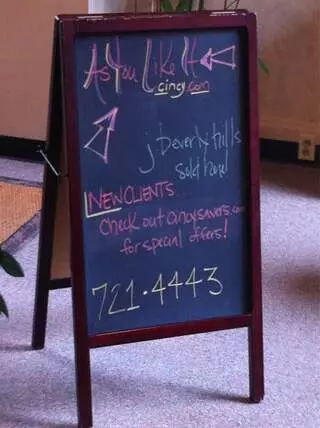 As You Like It
cincy.com
j beverly hills
sold here!
NEW CLIENTS
Check out cincysavers.com
for special offers!
721.4443